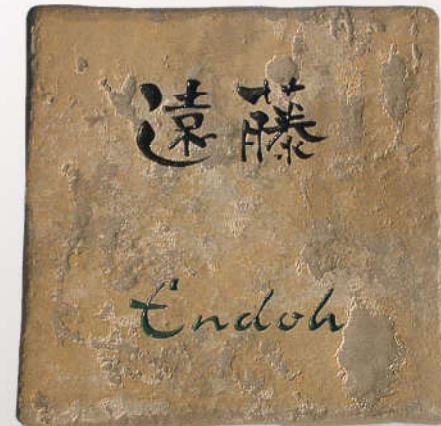 遠藤
Endoh